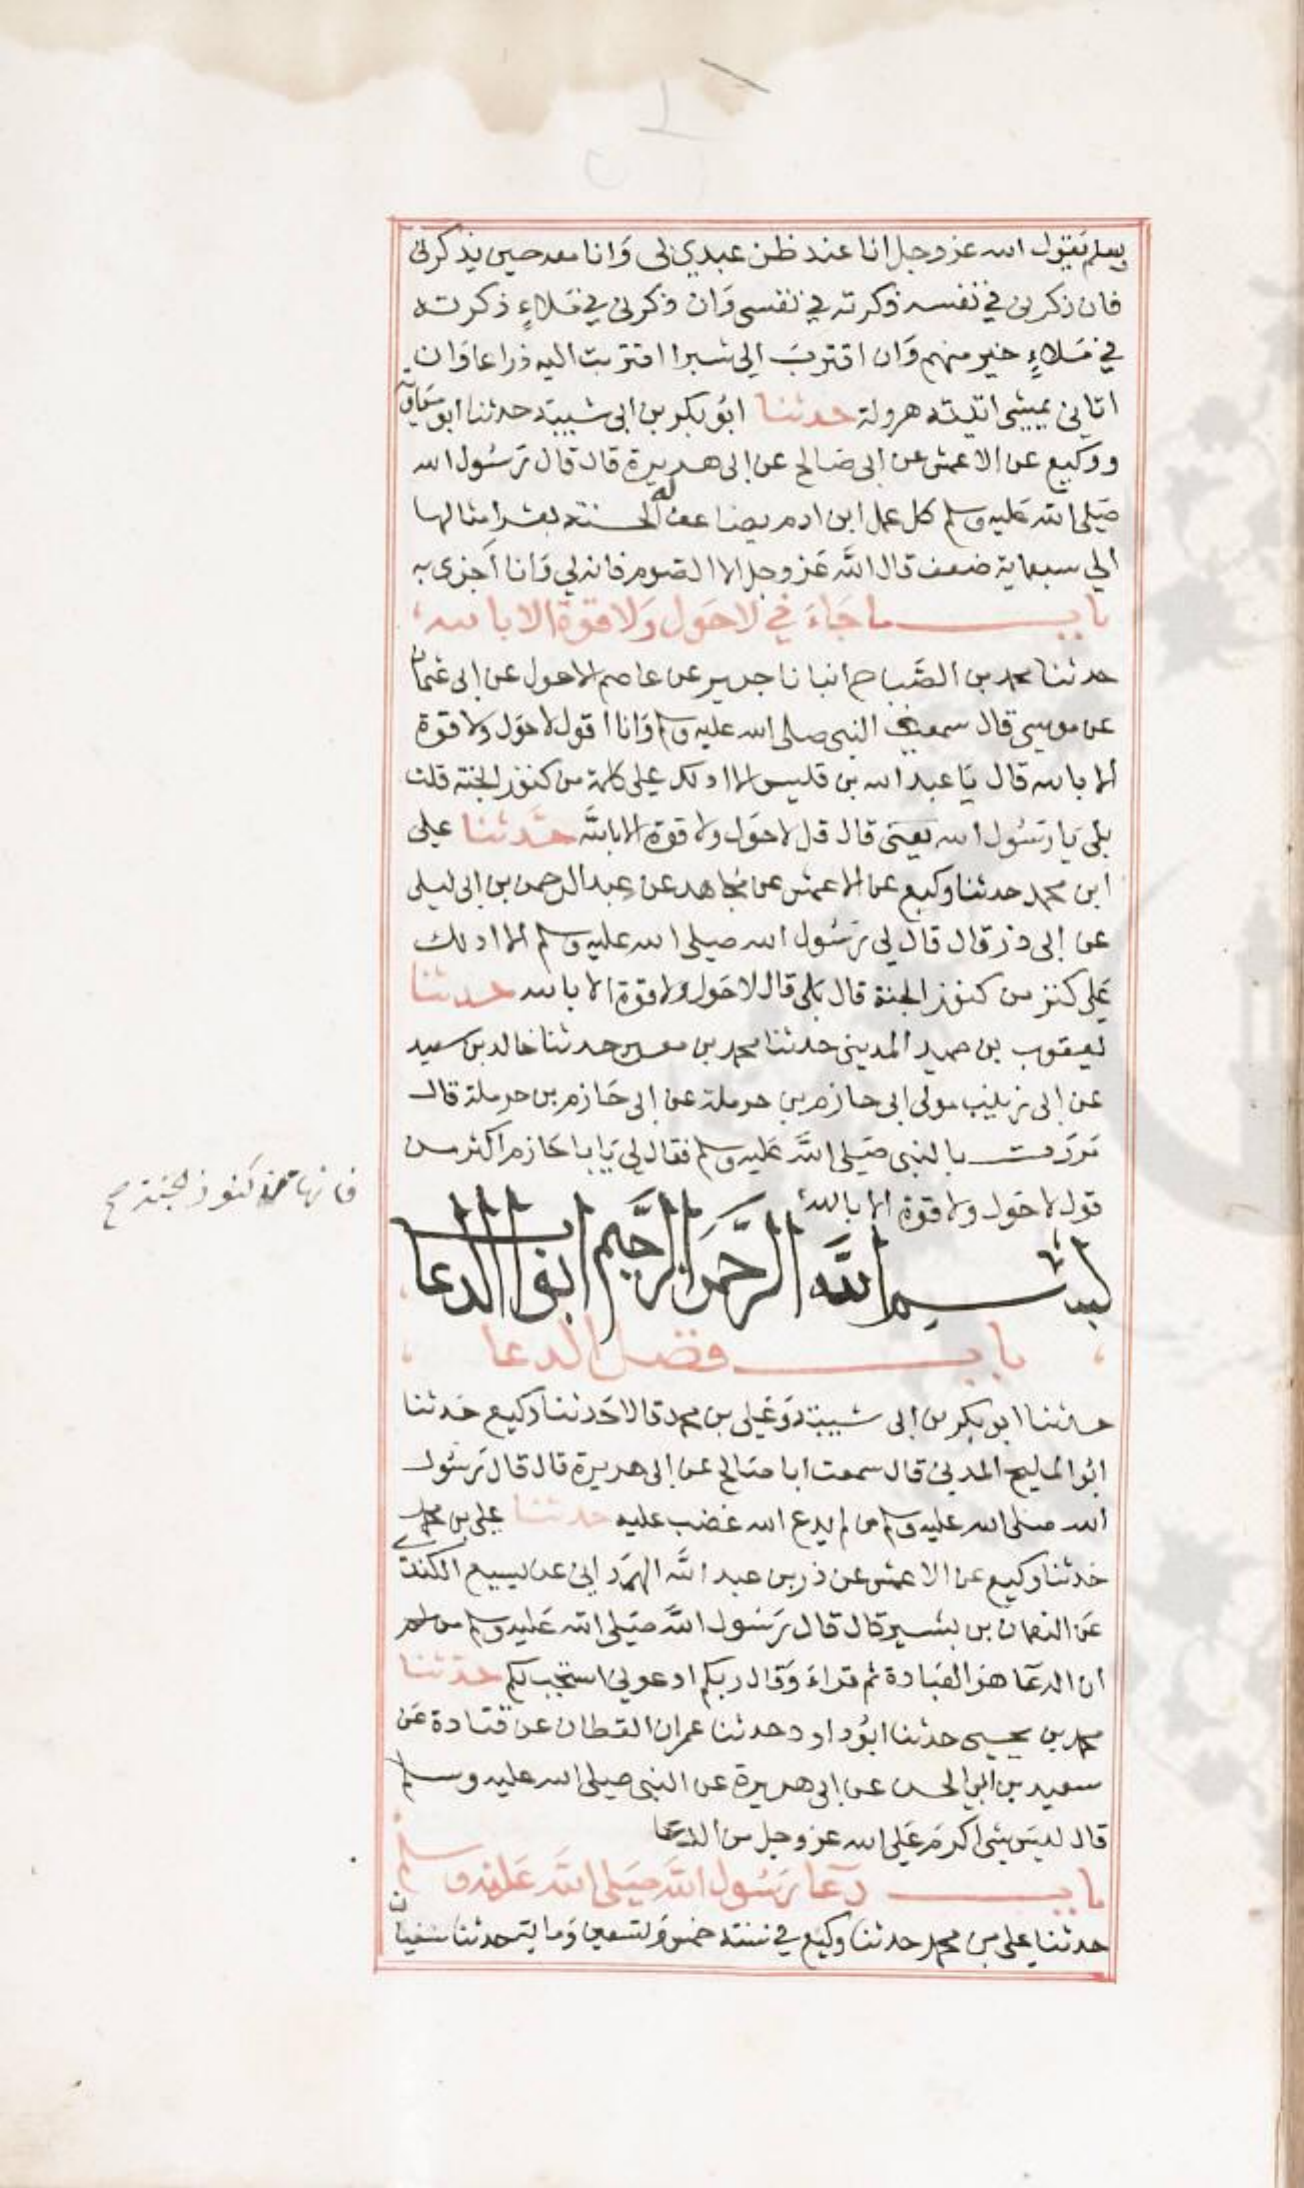 وسلم يقول الله عز وجل انا عند ظن عبدي لى وَانا معه حين يذكرنى
فان ذكرنى في نفسه ذكرته في نفسى وَان ذكرنى في مَلاءٍ ذكرته
في مَلاءٍ خير منهم وَان اقتربَ الي شبرا اقتربت اليه ذراعا وَان
اتاني يمشى اتيته هرولة حدثنا ابُو بكر بن ابى شيبة حدثنا ابو معَاوية
ووكيع عن الاعمش عن ابى صَالح عن ابى هريرة قال قال رَسُول الله
صَلى الله عَليه وسلم كل عمل ابن ادم يضاعف له الحسنة بعشر امثالها
الي سبعماية ضعف قال اللَّه عَز وجل الا الصوم فانه لي وَانا أجزى به
بابــ ما جَاءَ في لا حَول وَلا قوة الا بالله
حدثنا محمد بن الصَّباح انبانا جرير عن عاصم الاحول عن ابى عثمان
عن موسى قال سمعنى النبى صلى الله عليه وسلم وَانا اقول لا حَول ولا قوة
الا بالله قال يَا عبد الله بن قليس الا ادلك على كلمة من كنوز الجنة قلت
بلى يَا رَسُول الله يعنى قال قل لا حَول ولا قوة الا باللَّه حَدثنا على
ابن محمد حدثنا وكيع عن الاعمش عن مجاهد عن عبد الرحمن بن ابى ليلى
عن ابى ذر قال قال لي رَسُول الله صلى الله عليه وسلم الا ادلك
عَلى كنز من كنوز الجنة قال بَلى قال لا حَول ولا قوة الا بالله حدثنا
يعقوب بن حميد المدينى حدثنا محمد بن معن حدثنا خالد بن سعيد
عن ابى زينب مولى ابى حازم بن حرملة عن ابى حَازم بن حرملة قال
مَررَت بالنبى صَلى اللَّه عَليه وسلم فقال لي يَا ابا حَازم اكثر من
قول لا حَول ولا قوة الا بالله
فانها من كنوز الجنة صح
بسم اللَّه الرَّحمَن الرَّحيم ابواب الدعا
بابــ فضل الدعا
حدثنا ابو بكر بن ابى شيبة وَعَلى بن محمد قالا حَدثنا وكيع حَدثنا
ابُو المليح المدنى قال سمعت ابا صَالح عن ابى هريرة قال قال رَسُول
الله صلى الله عليه وسلم من لم يدع الله غضب عليه حدثنا على بن محمد
حَدثنا وكيع عن الاعمش عن ذر بن عبد اللَّه الهمَدانى عن يسيع الكندى
عَن النعمان بن بشير قال قال رَسُول اللَّه صَلى الله عَليه وسلم
ان الدعَا هوَ العبَادة ثم قراءَ وَقال ربكم ادعونى استجب لكم حدثنا
محمد بن يحيى حدثنا ابُو داود حدثنا عمران القطان عن قتادة عَن
سعيد بن ابى الحسن عن ابى هريرة عن النبى صلى الله عليه وسلم
قال لَيس شى اكرم عَلى الله عز وجل من الدعَا
بابــ دعَا رَسُول اللَّه صَلى اللَّه عَليه وسلم
حدثنا على بن محمد حدثنا وكيع في سنة خمس وَتسعين وَماية حدثنا سُفيان